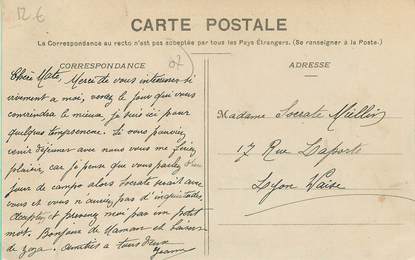 12.6
CARTE POSTALE
La Correspondance au recto n'est pas acceptée par tous les Pays Étrangers. (Se renseigner à la Poste.)
CORRESPONDANCE
02
Merci de vous intéresser si
vivement a moi, venez le jour que vous
conviendra le mieux, je suis ici pour
quelques temps encore. Si vous pouviez
venir déjeuner avec nous vous me feriez
plaisir, car je pense que vous parlez d'un
jour de campo alors Socrate serait avec
vous et vous n'auriez pas d'inquiétudes,
acceptez et prévenez moi par un petit
mot. Bonjour de Maman et baisers
de Zoza. Amitiés a tous deux
ADRESSE
Madame Socrate
17 Rue Laporte
Lyon Vaise